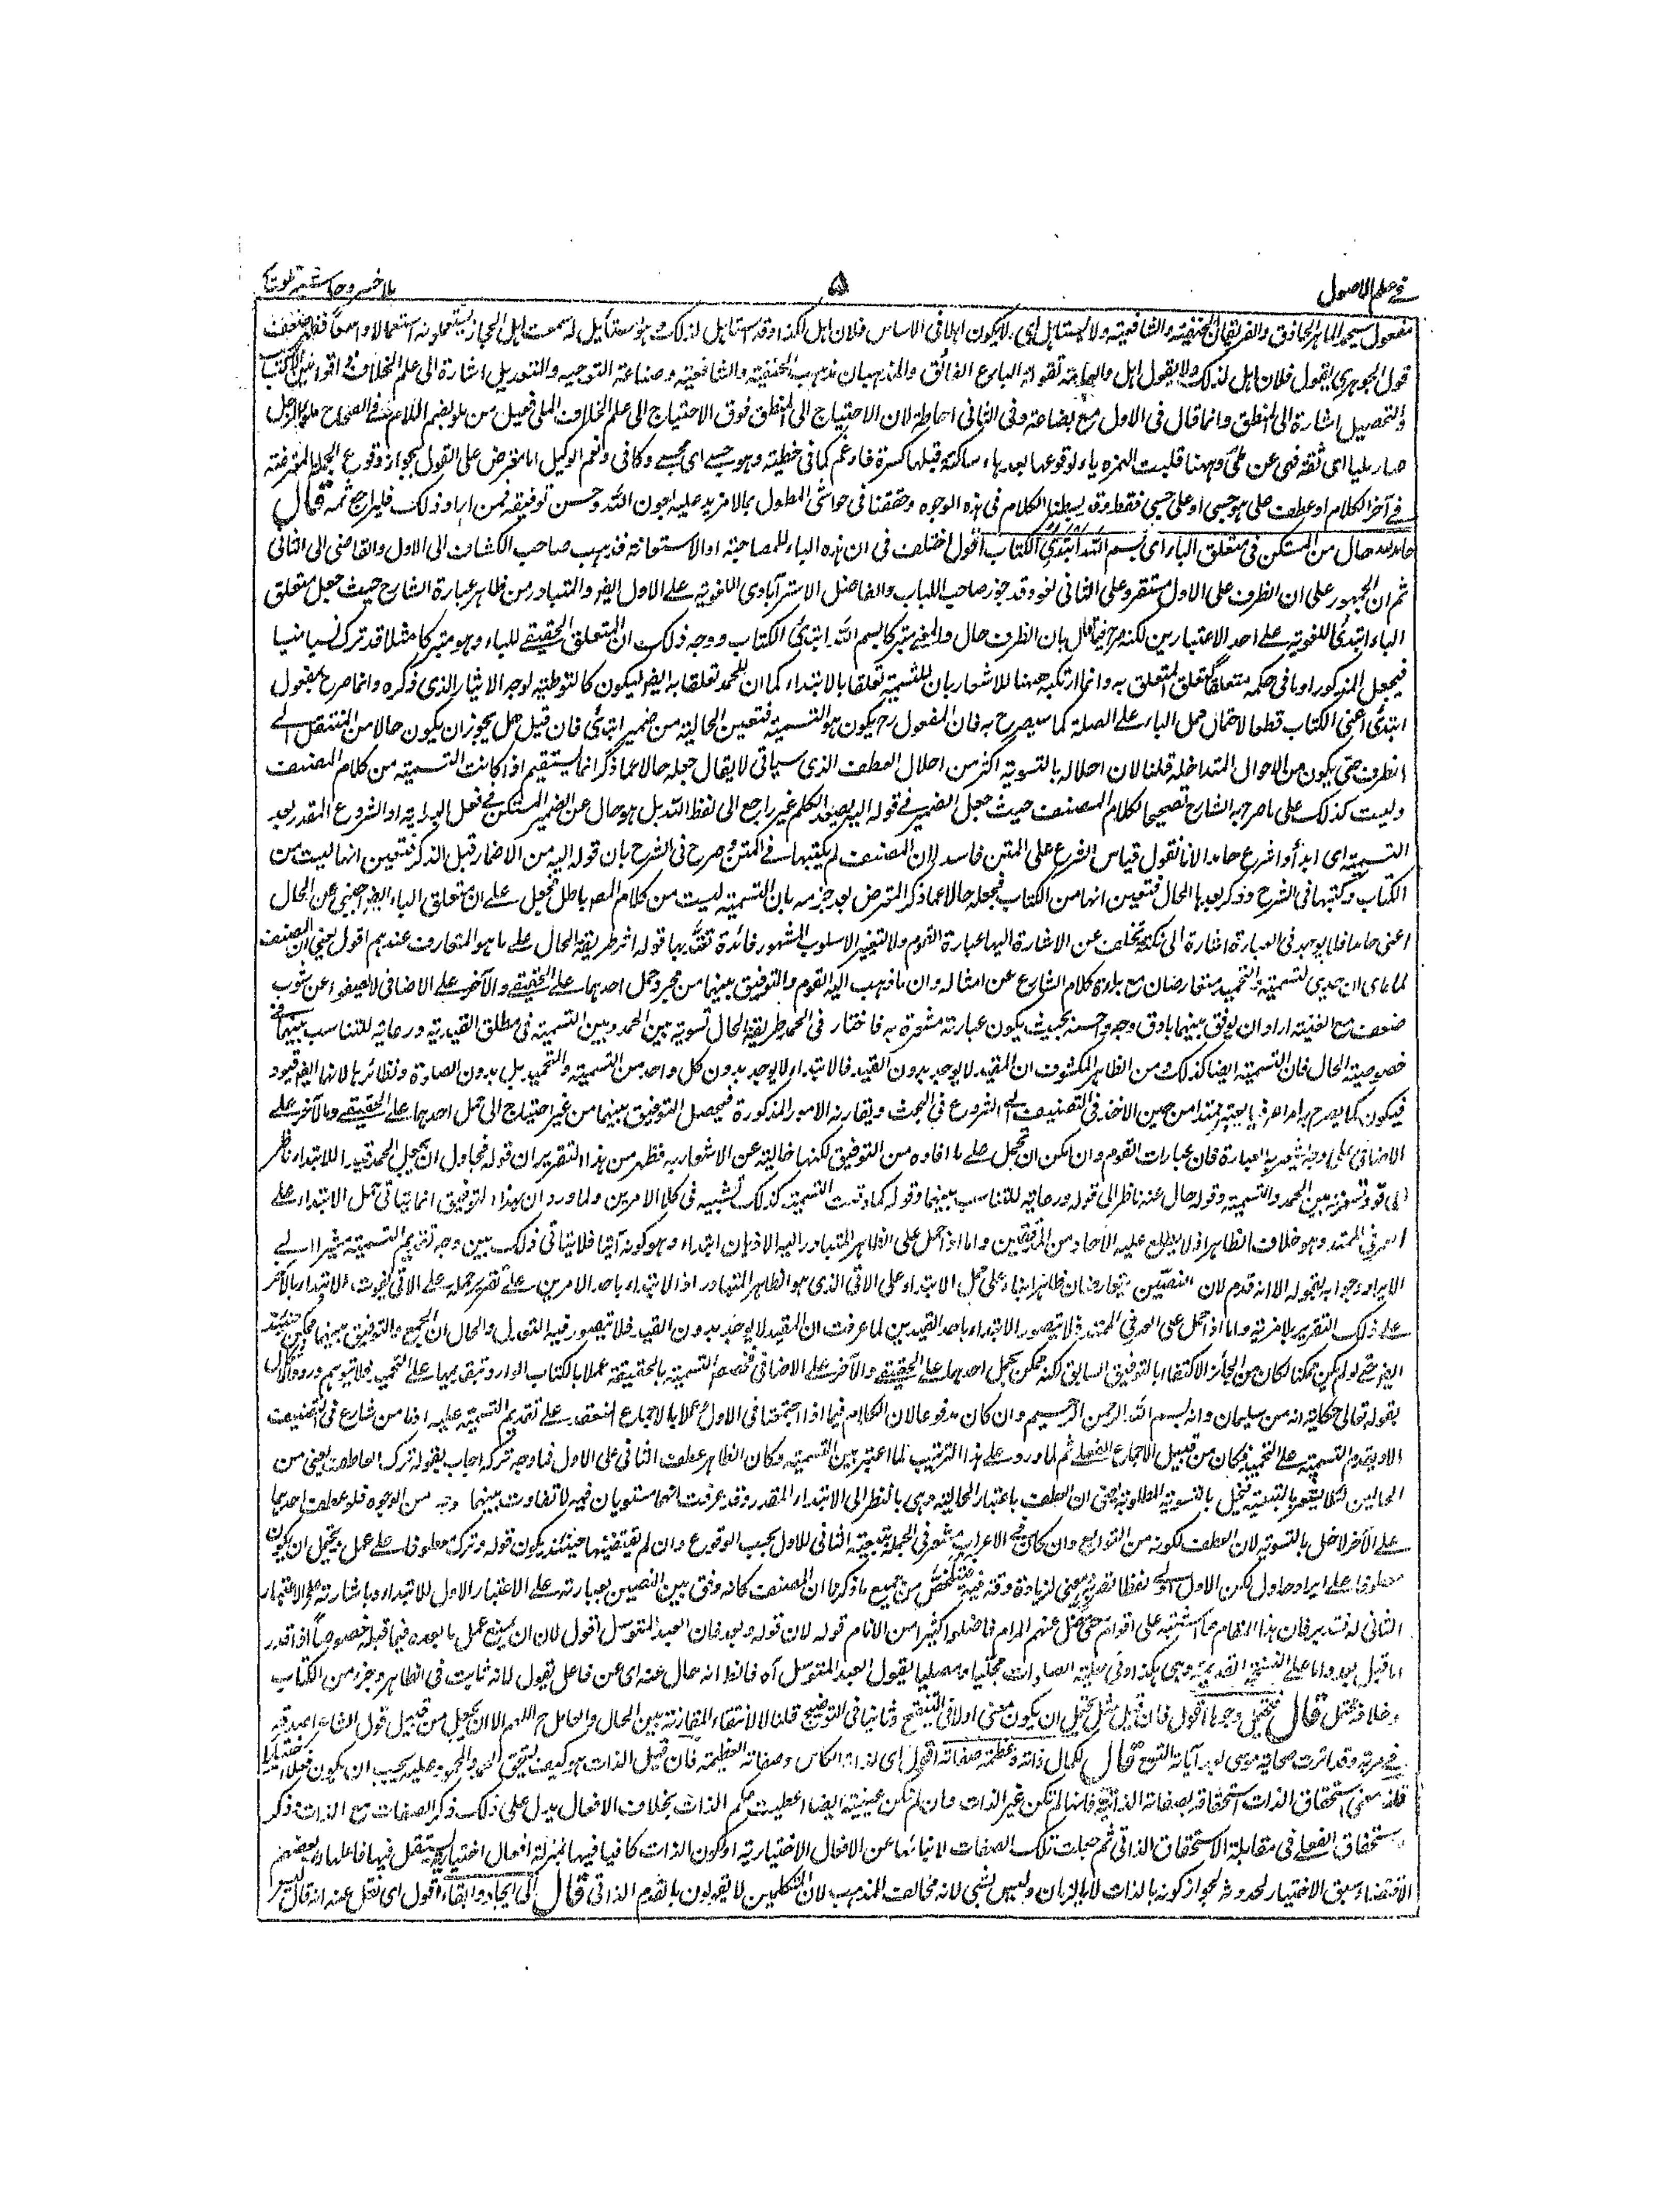 في علم الاصول
۵
ملا خسرو حاشية تلويح
مفعول سيحمد الماهر الحاذق والفريقان الحنفية والشافعية ولا يستاهل اي لا يكون اهلا في الاساس فلان اهل لكذا وقد استاهل لذلك وهو مستأهل له سمعت اهل الحجاز يستعملونه استعمالا واسعا فظهر ضعف
قول الجوهري يقول فلان اهل لذلك ولا يقول اهل والعامة تقوله البارع الفائق والمذهبان مذهب الحنفية والشافعية وصناعة التوجيه والتعديل اشارة الى علم الخلاف وقوانين الاكتساب
والتحصيل اشارة الى المنطق وانما قال في الاول مع بضاعة وفي الثاني احاطة لان الاحتياج الى المنطق فوق الاحتياج الى علم الخلاف الملي فعيل من ملؤ بضم اللام في الصحاح ملؤ الرجل
صار مليا اى ثقة فهى عن ملئ وههنا قلبت الهمزة ياء لوقوعها بعد ياء ساكنة قبلها كسرة فادغم كما في خطية وهو حسبي اى محسبي وكافي ونعم الوكيل اما معترض على القول بجواز وقوع الجملة المعترضة
في آخر الكلام او عطف على هو حسبي او على حسبي فقط وقد بسطنا الكلام في هذه الوجوه وحققنا في حواشي المطول بما لا مزيد عليه بعون الله وحسن توفيقه فمن اراد ذلك فليراجع ثمه قال
حامدا حال من المستكن في متعلق الباء اى بسم الله ابتدئ الكتاب اقول اختلف في ان هذه الباء للمصاحبة او الاستعانة فذهب صاحب الكشاف الى الاول والقاضي الى الثاني
ثم ان الجمهور على ان الظرف على الاول مستقر وعلى الثاني لغو وقد جوز صاحب اللباب والفاضل الاسترآبادي اللغوية على الاول ايضا والمتبادر من ظاهر عبارة الشارح حيث جعل متعلق
الباء ابتدئ اللغوية على احد الاعتبارين لكنه صرح فيما قال بان الظرف حال والمعنى متبركا بسم الله ابتدئ الكتاب ووجه ذلك ان المتعلق الحقيقي للباء وهو متبركا مثلا قد ترك نسيا منسيا
فيجعل المذكور او ما في حكمه متعلقا لتعلق المتعلق به وانما ارتكبه ههنا للاشعار بان للتسمية تعلقا بالابتداء كما ان للحمد تعلقا به ايضا ليكون كالتوطية لوجه الايثار الذي ذكره وانما صرح بمفعول
ابتدئ اعني الكتاب قطعا لاحتمال حمل الباء على الصلة كما سيصرح به فان المفعول ح يكون هو التسمية فتعين الحالية من ضمير ابتدئ فان قيل هل يجوز ان يكون حالا من المنتقل الى
الظرف حتى يكون من الاحوال المتداخلة قلنا لا لان اخلاله بالتسوية اكثر من اخلال العطف الذي سياتي لا يقال جعله حالا عما ذكر انما يستقيم اذا كانت التسمية من كلام المصنف
وليست كذلك على ما صرح به الشارح تصحيحا لكلام المصنف حيث جعل الضمير في قوله اليه يصعد الكلم غير راجع الى لفظ الله بل هو حال عن الضمير المستكن في فعل البداية او الشروع المقدر بعد
التسمية اى ابدأ او اشرع حامدا لانا نقول قياس الشرح على المتن فاسد لان المصنف لم يكتبها في المتن وصرح في الشرح بان قوله اليه من الاضمار قبل الذكر فتعين انها ليست من
الكتاب وكتبها في الشرح وذكر بعدها الحال فتعين انها من الكتاب فجعله حالا عما ذكر المعترض بعد جزمه بان التسمية ليست من كلام المص باطل
اعني حامدا قوله اشارة الى نكتة تخلف عن الاشارة اليها عبارة القوم ولا لتغيير الاسلوب المشهور فائدة تفيد بها قوله اثر طريقة الحال على ما هو المتعارف عندهم اقول يعني ان المصنف
لما راى ان حديثي التسمية والتحميد متعارضان مع براءة كلام الشارع عن امثاله وان ما ذهب اليه القوم في التوفيق بينهما من حمل احدهما على الحقيقي والآخر على الاضافي لا يصفو عن شوب
ضعف اراد ان يوفق بينهما بادق وجه واحسنه بحيث يكون عبارته مشعرة به فاختار في الحمد طريقة الحال تسوية بين الحمد وبين التسمية في مطلق القيدية ورعاية للتناسب بينهما في
خصوصية الحال فان التسمية ايضا كذلك ومن الظاهر المكشوف ان المقيد لا يوجد بدون القيد فالابتداء لا يوجد بدون كل واحد من التسمية والتحميد بل بدون الصلوة ونظائرها لانها ايضا قيود
فيكون كما يصرح به امرا عرفيا يعتبر ممتدا من حين الاخذ في التصنيف الى الشروع في البحث ويقارنه الامور المذكورة فيحصل التوفيق بينهما من غير احتياج الى حمل احدهما على الحقيقي والآخر على
الاضافي على وجه يشعر به العبارة فان عبارات القوم وان امكن ان تحمل على ما افاده من التوفيق لكنها خالية عن الاشعار به فظهر من هذا التقرير ان قوله فحاول ان يجعل الحمد قيدا للابتداء ناظر
الى قوله تسوية بين الحمد والتسمية وقوله حال عنه ناظر الى قوله ورعاية للتناسب بينهما وقوله كما وقعت التسمية كذلك تشبيه في كلا الامرين ولما ورد ان هذا التوفيق انما يتاتى بحمل الابتداء على
العرفي الممتد وهو خلاف الظاهر اذ لا يطلع عليه الا آحاد من المرتفقين واما اذا حمل على الظاهر المتبادر اليه الاذهان ابتداء وهو كونه آنيا فلا يتاتى ذلك بين وجه تقديم التسمية مشيرا الى
الايراد وجوابه بقوله الا انه قدم لان النصين يتعارضان ظاهرا بناء على حمل الابتداء على الآني الذي هو الظاهر المتبادر اذ الابتداء باحد الامرين على تقدير حمله على الآني يفوت الابتداء بالآخر
على ذلك التقرير بلا مرية واما اذا حمل على العرفي الممتد فلا يتصور الابتداء باحد القيدين لما عرفت ان المقيد لا يوجد بدون القيد فلا يتصور فيه التعدد والحال ان الجمع والتوفيق بينهما ممكن حينئذ
ايضا حتى لو لم يكن ممكنا لكان من الجائز الاكتفاء بالتوفيق السابق لكنه ممكن بحمل احدهما على الحقيقي والآخر على الاضافي فخصص التسمية بالحقيقة عملا بالكتاب الوارد بتقديمها على التحميد فلا يتوهم وروده
بقوله تعالى حكاية انه من سليمان وانه بسم الله الرحمن الرحيم وان كان مدفوعا لان الكلام فيما اذا اجتمعتا في الاول وعملا بالاجماع المنعقد على تقديم التسمية عليه اذ ما من شارع في التصنيف
الا ويقدم التسمية على التحميد فكان من قبيل الاجماع الفعلي ثم لما ورد على هذا الترتيب لما اعتبر بين التسمية وكان الظاهر عطف الثاني على الاول فما وجه تركه اجاب بقوله ترك العاطف يعني من
الحالين لئلا يشعر بالتبعية فيخل بالتسوية المطلوبة يعني ان العطف باعتبار الحالية وهى بالنظر الى الابتداء المقدر وقد عرفت انهما مستويان فيه لا تفاوت بينهما وجه من الوجوه فلو عطف احدهما
على الآخر لاخل بالتسوية لان العطف لكونه من التوابع وان كان في الاعراب مشعر في الجملة بتبعية الثاني للاول بحسب الوقوع وان لم يقتضيها حينئذ يكون قوله وترك معطوفا على عمل ويحتمل ان يكون
معطوفا على ايراد حاول لكن الاول اولى لفظا لقربه ومعنى لزيادة دقة فيه فتلخص من جميع ما ذكرنا ان المصنف كانه وفق بين النصين بعبارته على الاعتبار الاول للابتداء وباشارته على الاعتبار
الثاني له فتدبر فان هذا المقام مما اشتبه على اقوام حتى ضل عنهم المرام فاضلوا كثيرا من الانام قوله لان قوله وبعد فان العبد المتوسل اقول لان ان يمنع عمل ما بعده فيما قبله خصوصا اذا قدر
اما قبل بعد واما على النسخة القديمة وهى هكذا وفي حلبة الصلوات مجليا ومصليا يقول العبد المتوسل اه فانه حال عنه اى عن فاعل يقول لانه ثابت في الظاهر وجزء من الكتاب
وخلافه محتمل قال يحتمل وجوها اقول فان قيل هل يحتمل ان يكون معنى اولا في التنقيح وثانيا في التوضيح قلنا لا لانتفاء المقارنة بين الحال والعامل ح اللهم الا ان يجعل من قبيل قول الشاعر
في مرية وقد اثرت صحابة موسى بعد آياته التسع قال لكمال ذاته وعظمة صفاته اقول اى لذاته الكامل وصفاته العظيمة فان قيل الذات هو كيف يتحقق الحمد والمحمود عليه يجب ان يكون فعلا اختياريا
قلنا معنى استحقاق الذات استحقاقه بصفاته الذاتية فانها لما لم تكن غير الذات وان لم تكن عينيته ايضا اعطيت حكم الذات بخلاف الافعال يدل على ذلك ذكر الصفات مع الذات وذكر
استحقاق الفعلي في مقابلة الاستحقاق الذاتي ثم جعلت تلك الصفات لانبائها عن الافعال الاختيارية او لكون الذات كافيا فيها بمنزلة افعال اختيارية يستقل فيها فاعلها
الاقتضاء سبق الاختيار لحدوثه لجواز كونه بالذات لا بالزمان وليس بشئ لانه مخالف المذهب لان المتكلمين لا يقولون بالقدم الذاتي قال الى ايجاد وابقاء اقول اى نقل عنه انه قال